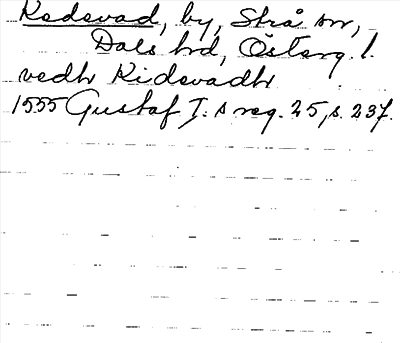 Kedevad, by, Strå sn,
Dals hd, Österg. l.
vedh Kidevadh
1555 Gustaf I:s reg. 25, s. 237.